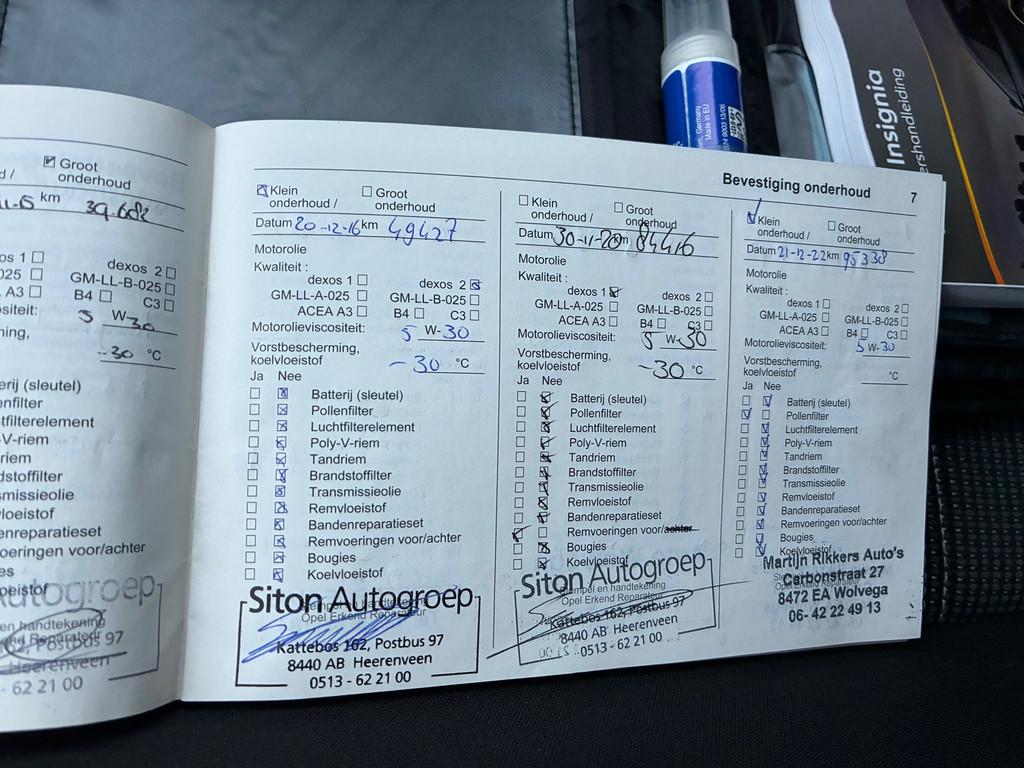 Groot
onderhoud
km 39.682
os 1
dexos 2
025
GM-LL-B-025
A3
B4 C3
siteit:
5 W-30
ning,
-30 °C
erij (sleutel)
enfilter
tfilterelement
y-V-riem
riem
dstoffilter
smissieolie
vloeistof
enreparatieset
voeringen voor/achter
es
utogroep
en handtekening
Postbus 97
Heerenveen
- 62 21 00
Klein
onderhoud /
Groot
onderhoud
Datum 20-12-16 km 49427
Motorolie
Kwaliteit :
dexos 1 dexos 2
GM-LL-A-025 GM-LL-B-025
ACEA A3 B4 C3
Motorolieviscositeit: 5 W-30
Vorstbescherming,
koelvloeistof -30 °C
Ja Nee
Batterij (sleutel)
Pollenfilter
Luchtfilterelement
Poly-V-riem
Tandriem
Brandstoffilter
Transmissieolie
Remvloeistof
Bandenreparatieset
Remvoeringen voor/achter
Bougies
Koelvloeistof
Siton Autogroep
Stempel en handtekening
Opel Erkend Reparateur
Kattebos 162, Postbus 97
8440 AB Heerenveen
0513 - 62 21 00
Klein
onderhoud /
Groot
onderhoud
Datum 30-11-20 km 84416
Motorolie
Kwaliteit :
dexos 1 dexos 2
GM-LL-A-025 GM-LL-B-025
ACEA A3 B4 C3
Motorolieviscositeit: 5 W-30
Vorstbescherming,
koelvloeistof -30 °C
Ja Nee
Batterij (sleutel)
Pollenfilter
Luchtfilterelement
Poly-V-riem
Tandriem
Brandstoffilter
Transmissieolie
Remvloeistof
Bandenreparatieset
Remvoeringen voor/achter
Bougies
Koelvloeistof
Siton Autogroep
Stempel en handtekening
Opel Erkend Reparateur
Kattebos 162, Postbus 97
8440 AB Heerenveen
0513 - 62 21 00
Bevestiging onderhoud 7
Klein
onderhoud /
Groot
onderhoud
Datum 21-12-22 km 95338
Motorolie
Kwaliteit :
dexos 1 dexos 2
GM-LL-A-025 GM-LL-B-025
ACEA A3 B4 C3
Motorolieviscositeit: 5 W-30
Vorstbescherming,
koelvloeistof °C
Ja Nee
Batterij (sleutel)
Pollenfilter
Luchtfilterelement
Poly-V-riem
Tandriem
Brandstoffilter
Transmissieolie
Remvloeistof
Bandenreparatieset
Remvoeringen voor/achter
Bougies
Koelvloeistof
Martijn Rikkers Auto's
Carbonstraat 27
8472 EA Wolvega
06- 42 22 49 13
Insignia
ershandleiding
Germany
Made in EU